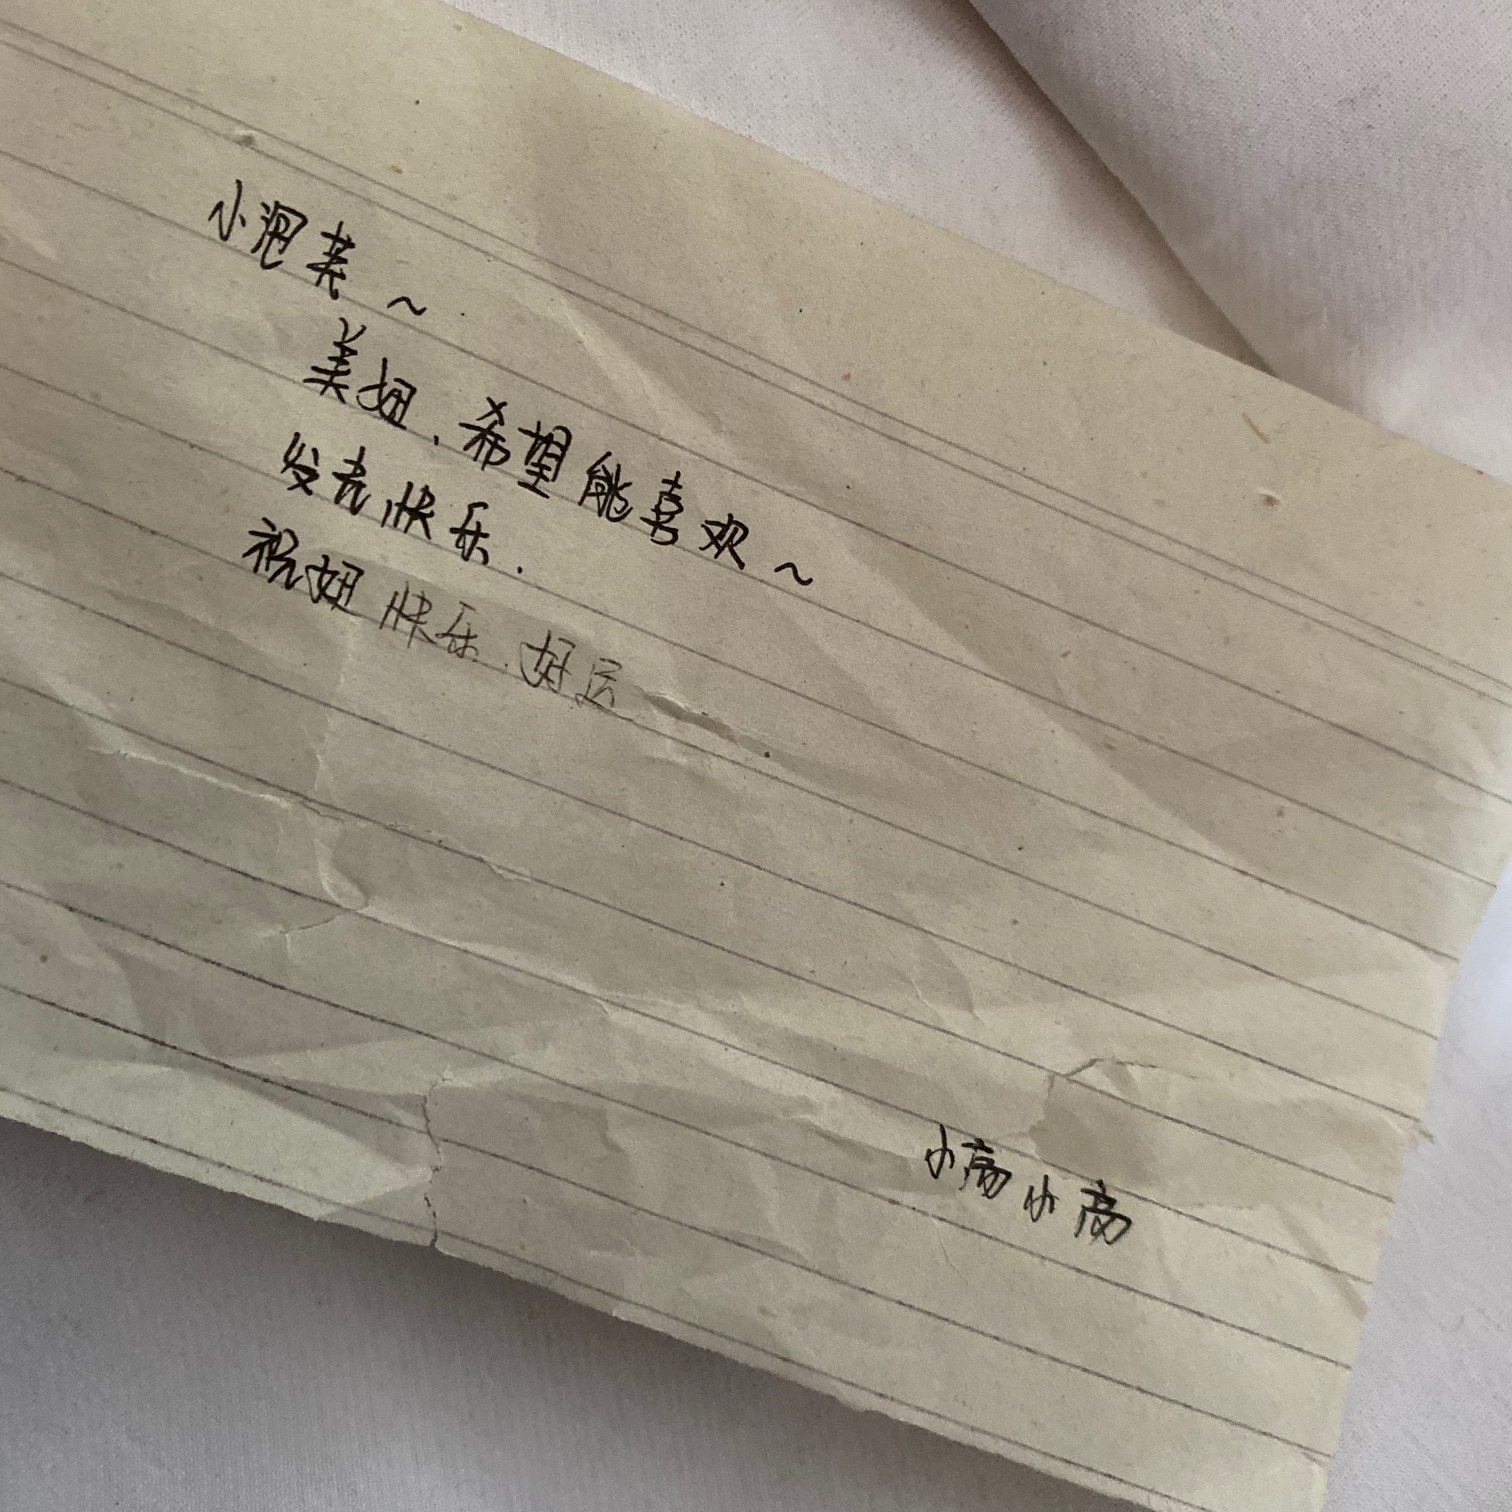 小泡芙～
美妞、希望能喜欢～
发专快乐.
祝妞快乐、好运
小高小高